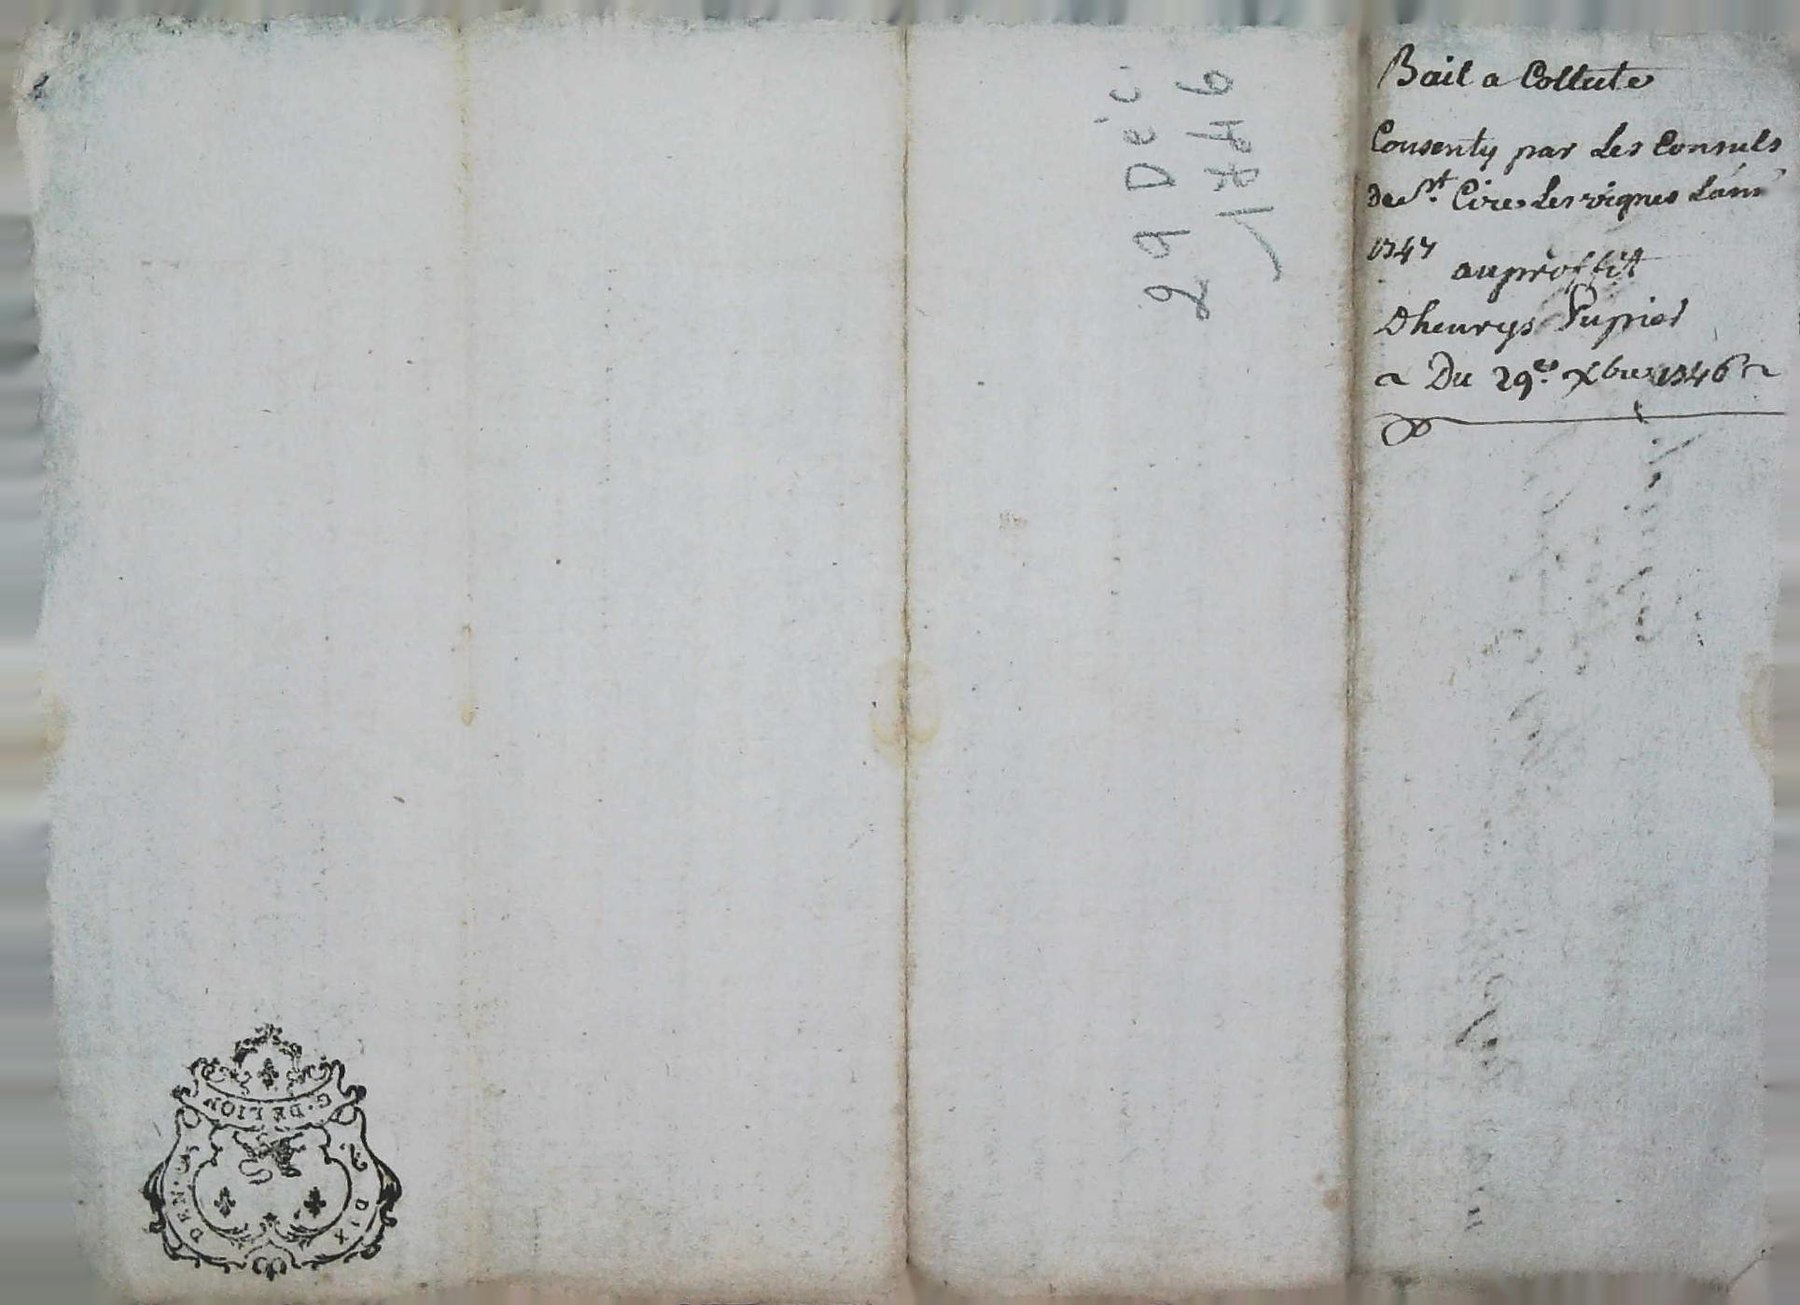 Bail a Collute
Consenty par Les Consuls
de St. Cire Les vignes Lann
1747 au proffit
Dhenrys Pupier
~ Du 29e. Xbre 1746 ~
29 Déc.
1746
G. DE LION
DIX DEN.